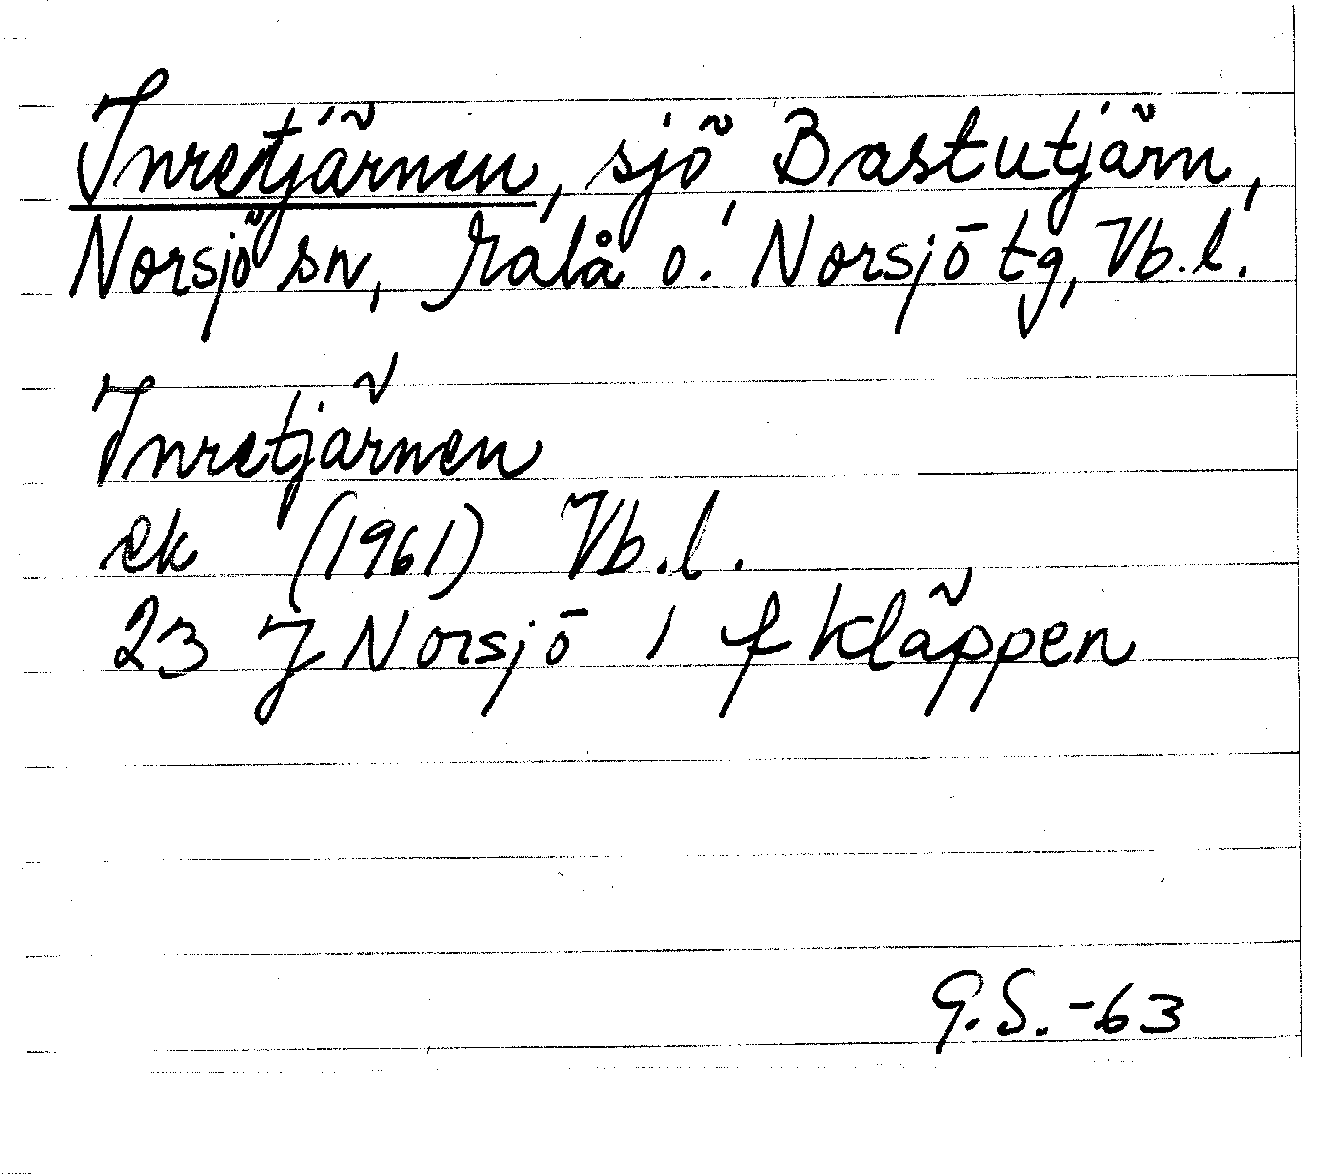 Inretjärnen, sjö, Bastutjärn,
Norsjö sn, Malå o. Norsjö tg, Vb.l.
Inretjärnen
ek (1961) Vb.l.
23 J Norsjö 1 f Kläppen
G.S. -63